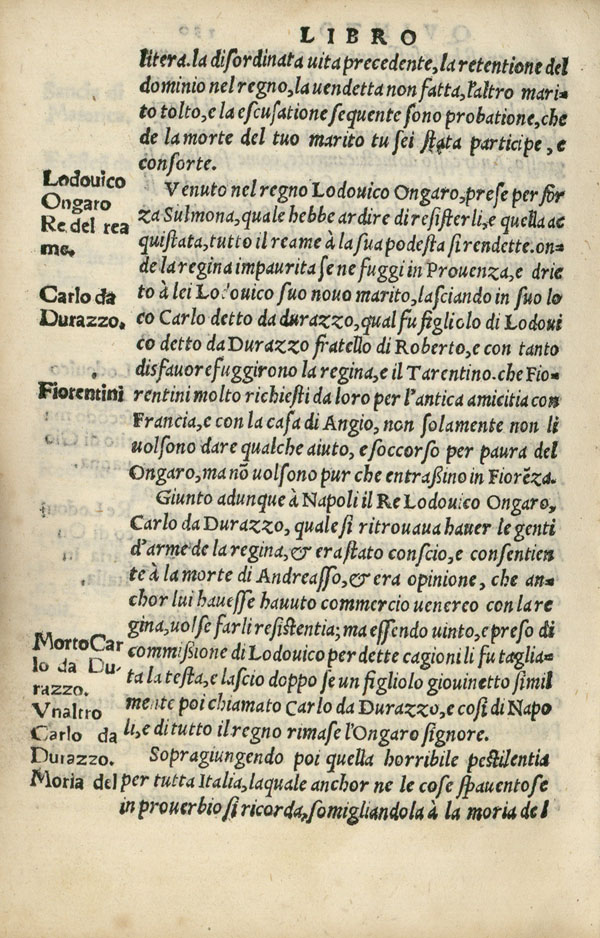 LIBRO
litera. la disordinata uita precedente, la retentione del
dominio nel regno, la uendetta non fatta, l'altro mari-
to tolto, e la escusatione sequente sono probatione, che
de la morte del tuo marito tu sei stata participe, e
consorte.
Lodouico
Ongaro
Re del rea
me.
Venuto nel regno Lodouico Ongaro, prese per for
za Sulmona, quale hebbe ardire di resisterli, e quella ac
quistata, tutto il reame à la sua podesta si rendette. on-
de la regina impaurita se ne fuggi in Prouenza, e drie
Carlo da
Durazzo.
to à lei Lodouico suo nouo marito, lasciando in suo lo
co Carlo detto da durazzo, qual fu figliolo di Lodoui
co detto da Durazzo fratello di Roberto, e con tanto
disfauore fuggirono la regina, e il Tarentino. che Fio-
Fiorentini
rentini molto richiesti da loro per l'antica amicitia con
Francia, e con la casa di Angio, non solamente non li
uolsono dare qualche aiuto, e soccorso per paura del
Ongaro, ma nõ uolsono pur che entraßino in Fiorẽza.
Giunto adunque à Napoli il Re Lodouico Ongaro,
Carlo da Durazzo, quale si ritrouaua hauer le genti
d'arme de la regina, & era stato conscio, e consentien
te à la morte di Andreasso, & era opinione, che an-
chor lui hauesse hauuto commercio uenereo con la re
gina, uolse farli resistentia; ma essendo uinto, e preso di
Morto Car
lo da Du-
razzo.
commißione di Lodouico per dette cagioni li fu taglia-
ta la testa, e lascio doppo se un figliolo giouinetto simil
Vnaltro
Carlo da
Durazzo.
mente poi chiamato Carlo da Durazzo, e cosi di Napo
li, e di tutto il regno rimase l'Ongaro signore.
Sopragiungendo poi quella horribile pestilentia
Moria del
per tutta Italia, laquale anchor ne le cose spauentose
in prouerbio si ricorda, somigliandola à la moria del